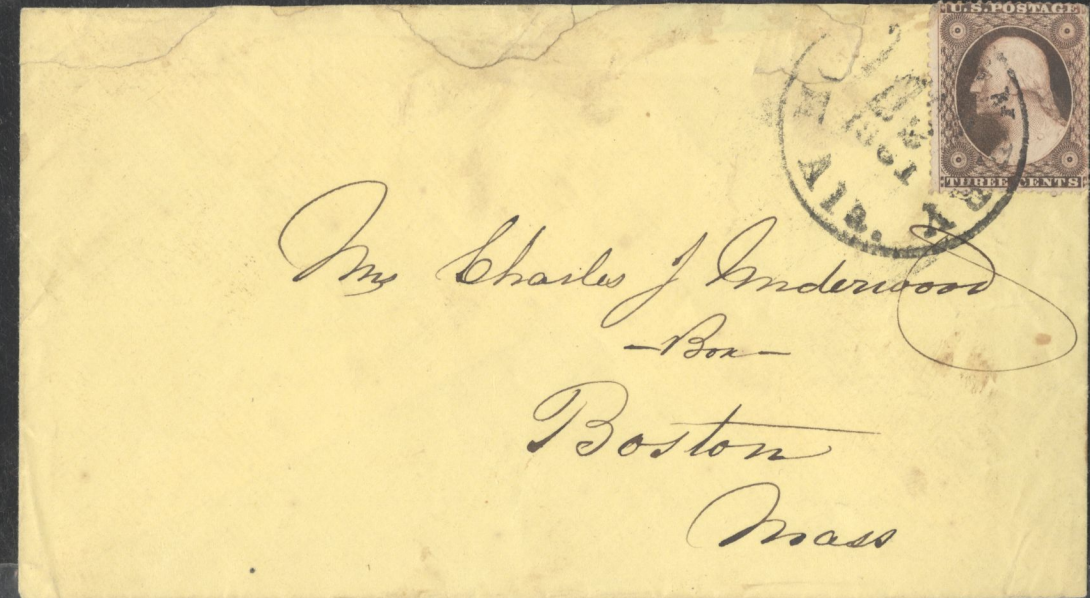 U.S. POSTAGE
THREE CENTS
1861
Ala.
Mr Charles J Underwood
-Box-
Boston
Mass